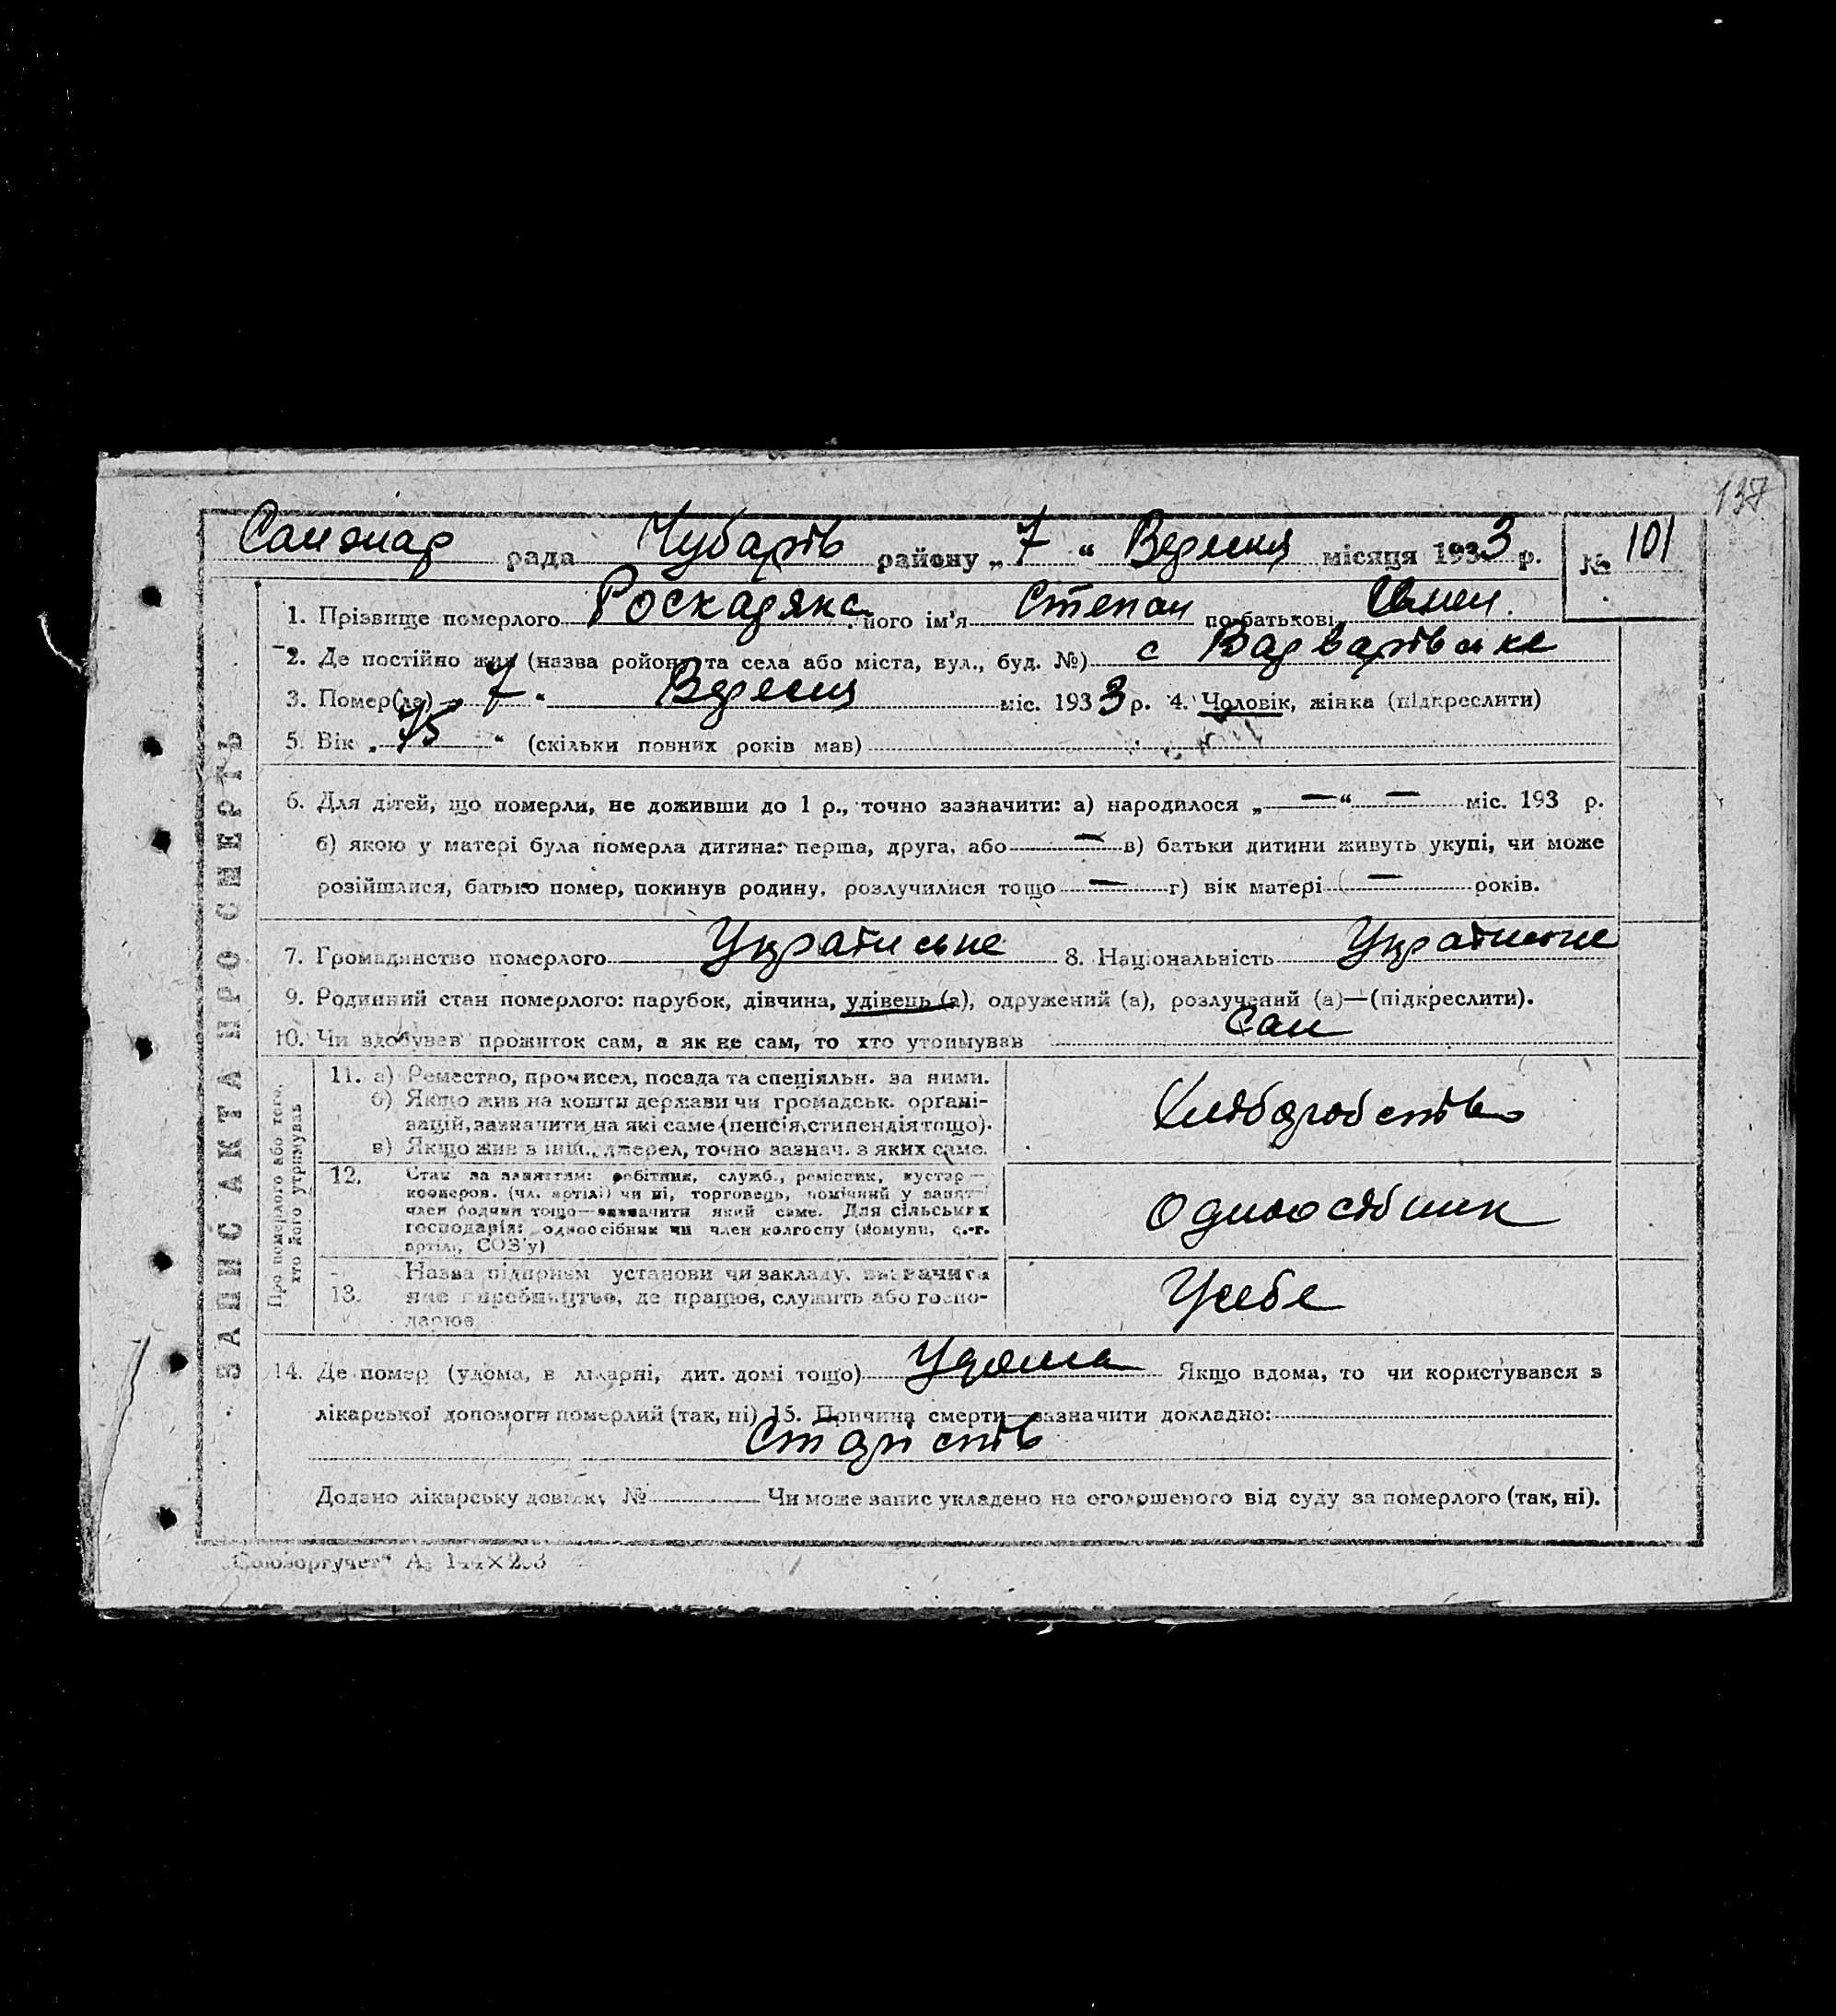 137
рада Чубарів району „7" Вересня місяця 1933 р. № 101
1. Прізвище померлого його ім'я Степан по батькові
2. Де постійно жив (назва району та села або міста, вул., буд. №) с Варварівське
3. Помер(ла) „7" Вересня міс. 1933 р. 4. Чоловік, жінка (підкреслити)
5. Вік „75" (скільки повних років мав)
6. Для дітей, що померли, не доживши до 1 р., точно зазначити: а) народилося „—" — міс. 193 р.
б) якою у матері була померла дитина: перша, друга, або — в) батьки дитини живуть укупі, чи може
розійшлися, батько помер, покинув родину, розлучилися тощо — г) вік матері — років.
7. Громадянство померлого Українське 8. Національність
9. Родинний стан померлого: парубок, дівчина, удівець (а), одружений (а), розлучений (а)—(підкреслити).
10. Чи здобував прожиток сам, а як не сам, то хто утримував Сам
ЗАПИС АКТА ПРО СМЕРТЬ
Про померлого або того,
хто його утримував
11. а) Ремество, промисел, посада та спеціяльн. за ними.
б) Якщо жив на кошти держави чи громадськ. орґані-
зацій, зазначити на які саме (пенсія, стипендія тощо).
в) Якщо жив з інш. джерел, точно зазнач. з яких саме.
Хліборобств
12. Стан за заняттям: робітник, служб., ремісник, кустар—
кооперов. (чл. артілі) чи ні, торговець, помічний у занят—
член родини тощо—зазначити який саме. Для сільських
господарів: одноосібник чи член колгоспу (комуни, с.-г.
артілі, СОЗ'у)
Одноосібник
13. Назва підприєм установи чи закладу, визначити
яке виробництво, де працює, служить або госпо-
дарює
Усебе
14. Де помер (удома, в лікарні, дит. домі тощо) Удома Якщо вдома, то чи користувався з
лікарської допомоги померлий (так, ні) 15. Причина смерти—зазначити докладно:
Старість
Додано лікарську довідку № Чи може запис укладено на оголошеного від суду за померлого (так, ні).
„Союзоргучет"